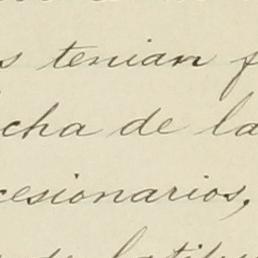 s tenian f
cha de la
cesionarios,